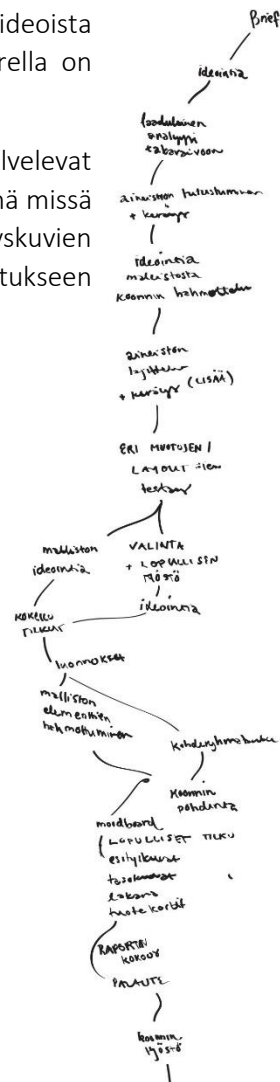 ideoista
rella on
lvelevat
nä missä
yskuvien
tukseen
Brief
ideointia
laadullinen
analyysi
aineistoon tutustuminen
+ keräys
ideointia
mallistosta
koonnin hahmottelu
aineiston
lajittelu
+ keräys (LISÄÄ)
ERI MUOTOJEN /
LAYOUT
testaus
malliston
ideointia
VALINTA
+ LOPULLISEN
TYÖSTÖ
ideointia
KOKEILU
TILKUT
luonnokset
malliston
elementtien
hahmottuminen
Kohderyhmä
koonnin
pohdinta
moodboard
LOPULLISET TILKUT
esityskuvat
tasokuvat
lakana
tuotekortit
RAPORTIN
KOKOOV
PALAUTE
koonnin
työstö